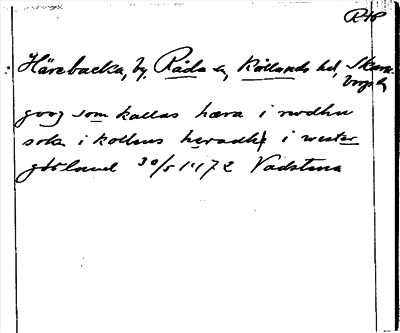 R48
Härebacka, by, Råda sn, Kållands hd, Skara-
borgs l.
goog som kallas hæra i rwdhu
sokn i kollens heradhe i wester
götland 30/5 1472 Vadstena